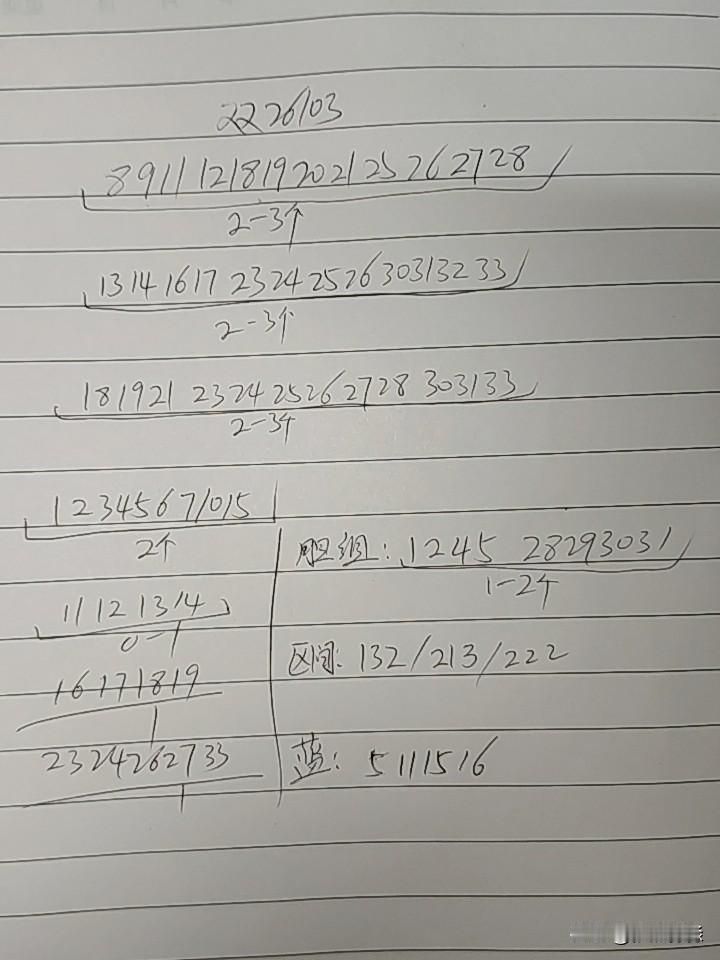 2226103
8 9 11 12 18 19 20 21 25 26 27 28
2-3个
13 14 16 17 23 24 25 26 30 31 32 33
2-3个
18 19 21 23 24 25 26 27 28 30 31 33
2-3个
1 2 3 4 5 6 7 10 15
2个
11 12 13 14
0-1
16 17 18 19
1
23 24 26 27 33
1
胆组: 1 2 4 5 28 29 30 31
1-2个
区间: 132/213/222
蓝: 5 11 15 16